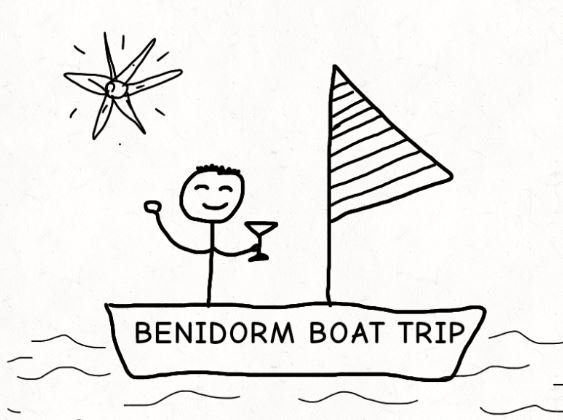 BENIDORM BOAT TRIP